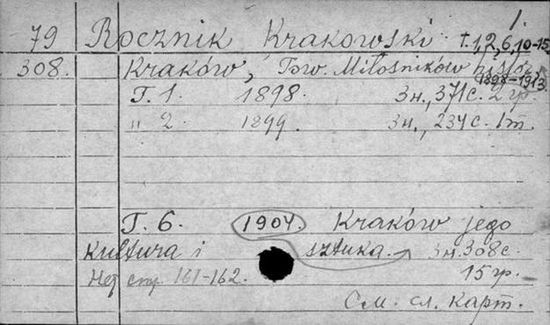 1.
79 Rocznik Krakowski t.1,2,6,10-15
308. Kraków, Tow. Miłośników
1898-1913
T. 1 1898. 3н., 371с. 2 гр.
" 2. 1899. 3н., 237с. 1т.
T. 6. 1904. Kraków jego
kultura i sztuka. 3н. 308с.
Нет стр. 161-162. 15 гр.
См. сл. карт.